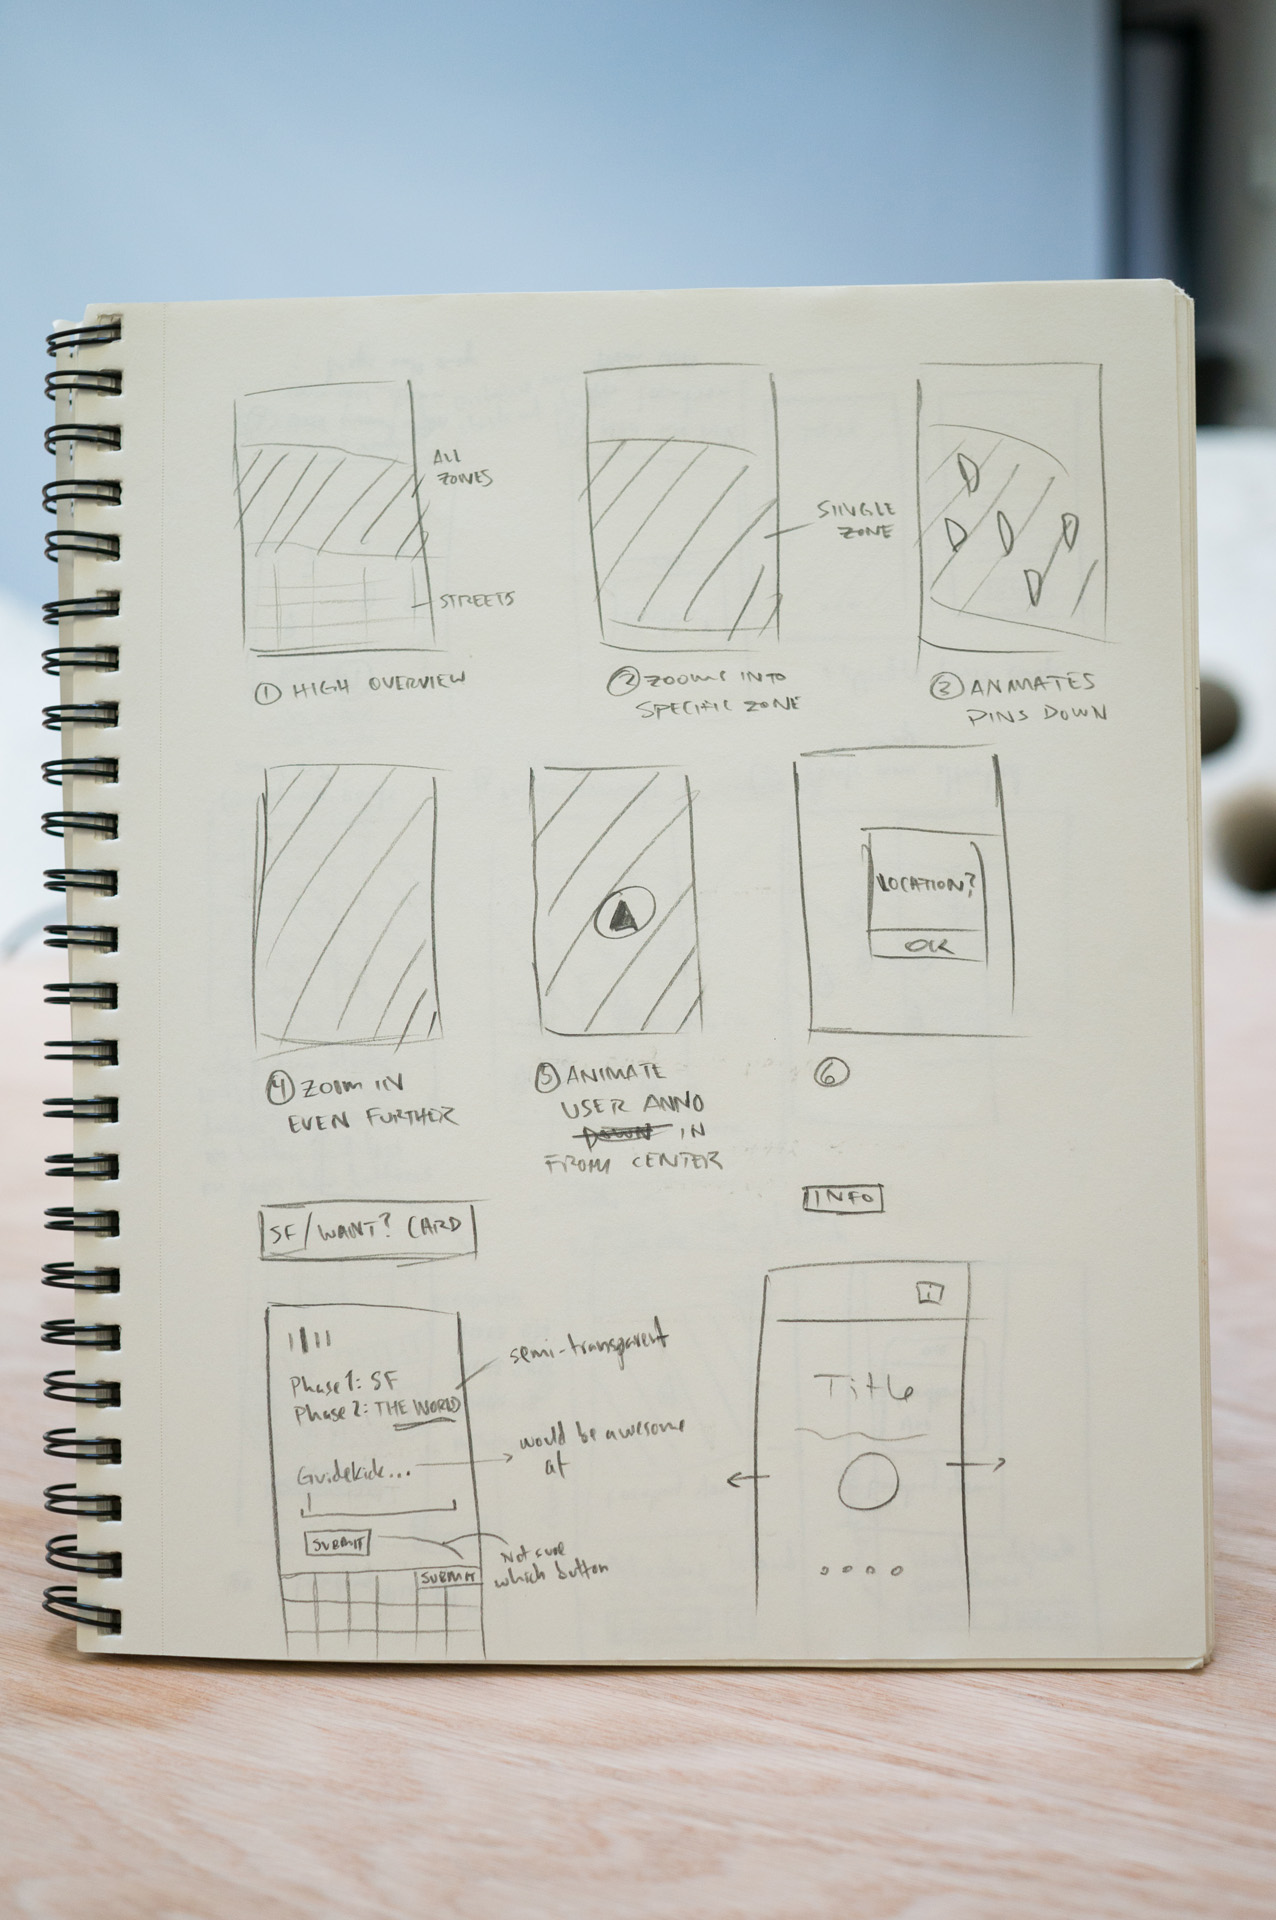 ALL
ZONES
STREETS
① HIGH OVERVIEW
SINGLE
ZONE
② ZOOMS INTO
SPECIFIC ZONE
③ ANIMATES
PINS DOWN
④ ZOOM IN
EVEN FURTHER
⑤ ANIMATE
USER ANNO
DOWN IN
FROM CENTER
LOCATION?
OK
⑥
SF/WANT? CARD
Phase 1: SF
Phase 2: THE WORLD
semi-transparent
Guidekick...
would be awesome
at
SUBMIT
SUBMIT
Not sure
which button
INFO
i
Title